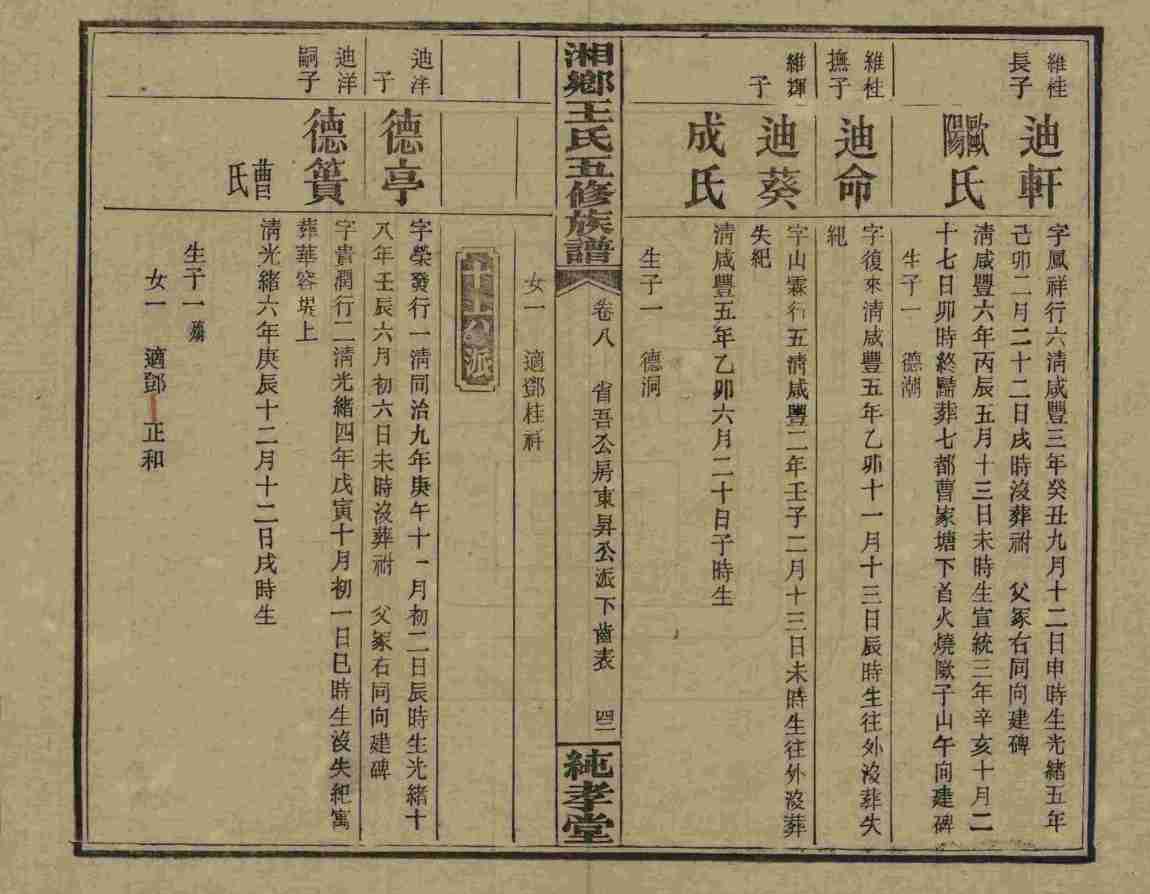 維桂
長子
迪軒
字鳳祥行六淸咸豐三年癸丑九月十二日申時生光緒五年
己卯二月二十二日戌時沒葬祔　父冢右同向建碑
歐陽氏
淸咸豐六年丙辰五月十三日未時生宣統三年辛亥十月二
十七日卯時終歸葬七都曹家塘下首火燒歐子山午向建碑
生子一　德潮
維桂
撫子
迪命
字復來淸咸豐五年乙卯十一月十三日辰時生往外沒葬失
紀
維輝
子
迪葵
字山霖行五淸咸豐二年壬子二月十三日未時生往外沒葬
失紀
成氏
淸咸豐五年乙卯六月二十日子時生
生子一　德洞
湘鄉王氏五修族譜
卷八　省吾公房東昇公派下齒表　四二
純孝堂
女一　適鄧桂科
十八派
迪洋
子
德亭
字榮發行一淸同治九年庚午十一月初二日辰時生光緒十
八年壬辰六月初六日未時沒葬祔　父冢右同向建碑
迪洋
嗣子
德簣
字貴潤行二淸光緒四年戊寅十月初一日巳時生沒失紀寓
葬華容垸上
曹氏
淸光緒六年庚辰十二月十二日戌時生
生子一　殤
女一　適鄧正和